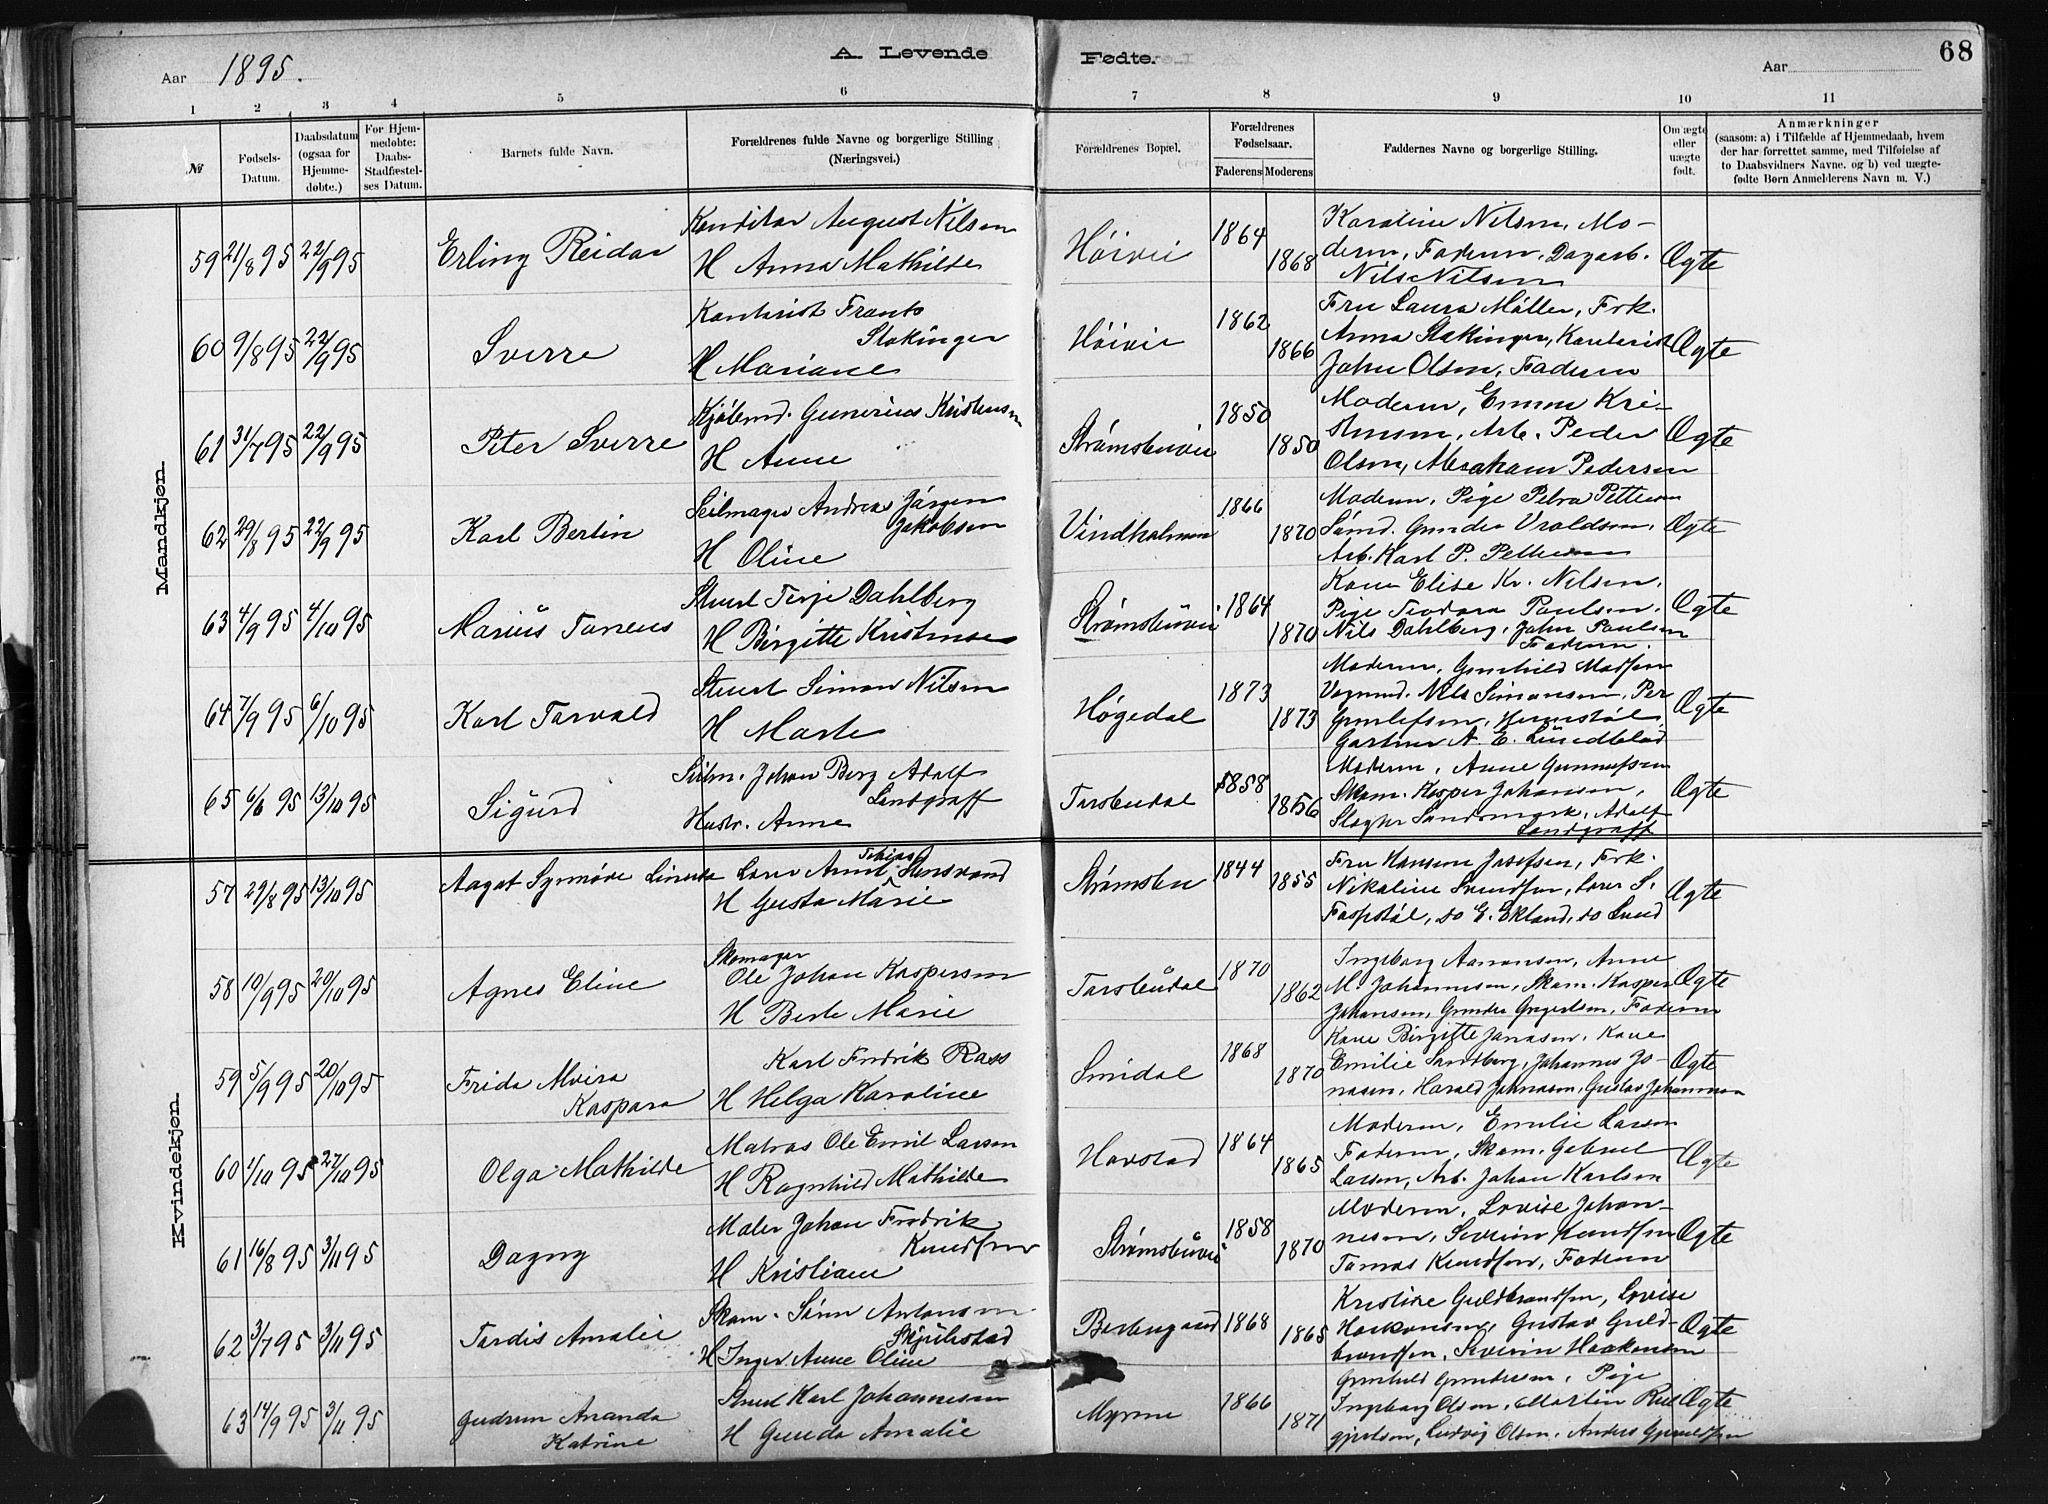 Aar 1895.
A. Levende Fødte.
Aar
68
1 2 3 4 5 6 7 8 9 10 11
№
Fødsels-Datum.
Daabsdatum (ogsaa for Hjemmedøbte.)
For Hjemmedøbte: Daabs-Stadfæstelses Datum.
Barnets fulde Navn.
Forældrenes fulde Navne og borgerlige Stilling (Næringsvei.)
Forældrenes Bopæl.
Forældrenes Fødselsaar.
Faderens Moderens
Faddernes Navne og borgerlige Stilling.
Om ægte eller uægte født.
Anmærkninger
(saasom: a) i Tilfælde af Hjemmedaab, hvem der har forrettet samme, med Tilføielse af to Daabsvidners Navne. og b) ved uægtefødte Børn Anmelderens Navn m. V.)
Mandkjøn.
59 21/8 95 22/9 95 Erling Reidar
Konditor August Nilsen
H Anna Mathilde
Høivei 1864 1868
Karoline Nilsen, Mo-
deren, Faderen, Dagarb.
Nils Nilsen
Ægte
60 9/8 95 22/9 95 Sverre
Kontorist Frants
Stokinger
H Mariane
Høivei 1862 1866
Fru Laura Møller, Frk.
Anna Stokinger, Kontorist
John Olsen, Faderen
Ægte
61 31/7 95 22/9 95 Peter Sverre
Kjøbmd. Gunerius Kristensen
H Anne
Strømsbuvei 1850 1850
Moderen, Emma Kri-
stensen, Arb. Peder
Olsen, Abraham Pedersen
Ægte
62 29/8 95 22/9 95 Karl Bertin
Seilmager Andreas Jørgen
Jakobsen
H Oline
Vindholmen 1866 1870
Moderen, Pige Petra Pettersen
Sømd. Gunder Uvaldsen,
Arb. Karl P. Pettersen
Ægte
63 4/9 95 4/10 95 Marius Toneus
Stuert Terje Dahlberg
H Birgitte Kristense
Strømsbuvei 1864 1870
Kone Elise Kr. Nilsen,
Pige Teodora Paulsen,
Nils Dahlberg, John Paulsen
Faderen.
Ægte
64 7/9 95 6/10 95 Karl Torvald
Stuert Simon Nilsen
H Marte
Høgedal 1873 1873
Moderen, Gunhild Madsen
Vognmd. Nils Simonsen, Per
Gartner A. E. Lundblad
Ægte
65 6/6 95 13/10 95 Sigurd
Seilm. Johan Berg Adolf
Landgraff
Hustr. Anne
Torsbudal 1858 1856
Moderen, Anne Gunnufsen
Skom. Kasper Johansen,
Slagter Sandsmark, Adolf
Landgraff
Ægte
Kvindekjøn.
57 29/8 95 13/10 95 Aagot Synnøve
Tobias
H Gusta Marie
Strømsbu 1844 1855
Fru Hansine Josefsen, Frk.
Nikoline Svendsen, Lærer S.
do E. Ekland, do Lund
Ægte
58 10/9 95 20/10 95 Agnes Eline
Skomager
Ole Johan Kaspersen
H Berte Marie
Torsbudal 1870 1862
Ingeborg Aanonsen, Anne
M. Johannesen, Skom. Kasper
Johansen, Gunder Faderen
Ægte
59 5/9 95 20/10 95 Frida Alvira
Kaspara
Karl Fredrik Rass
H Helga Karoline
Smidal 1868 1870
Kone Birgitte Jonasen, Kone
Emilie Sandberg, Johannes Jo-
nasen, Harald Johnasen, Gustav Johannesen
Ægte
60 1/10 95 27/10 95 Olga Mathilde
Matros Ole Emil Larsen
H Ragnhild Mathilde
Havstad 1864 1865
Moderen, Emilie Larsen
Faderen, Skom. Gabriel
Larsen, Arb. Johan Karlsen
Ægte
61 16/8 95 3/11 95 Dagny
Maler Johan Fredrik
Knudsen
H Kristiane
Strømsbuvei 1858 1870
Moderen, Lovise Johan-
nesen, Severin Knudsen
Tomas Knudsen, Faderen
Ægte
62 3/7 95 3/11 95 Tordis Amalie
Skom. Sören Antonsen
Skjulestad
H Inger Anne Oline
Barbugaard 1868 1865
Kristine Guldbrandsen, Lovise
Haakonsen, Gustav Guld-
brandsen, Severin Haakonsen
Ægte
63 14/9 95 3/11 95 Gudrun Ananda
Katrine
Stuert Karl Johannesen
H Gunda Amalie
Myrene 1866 1871
Gunhild Gundersen, Pige
Ingeborg Olsen, Martin Rei
Ludvig Olsen, Anders
Ægte